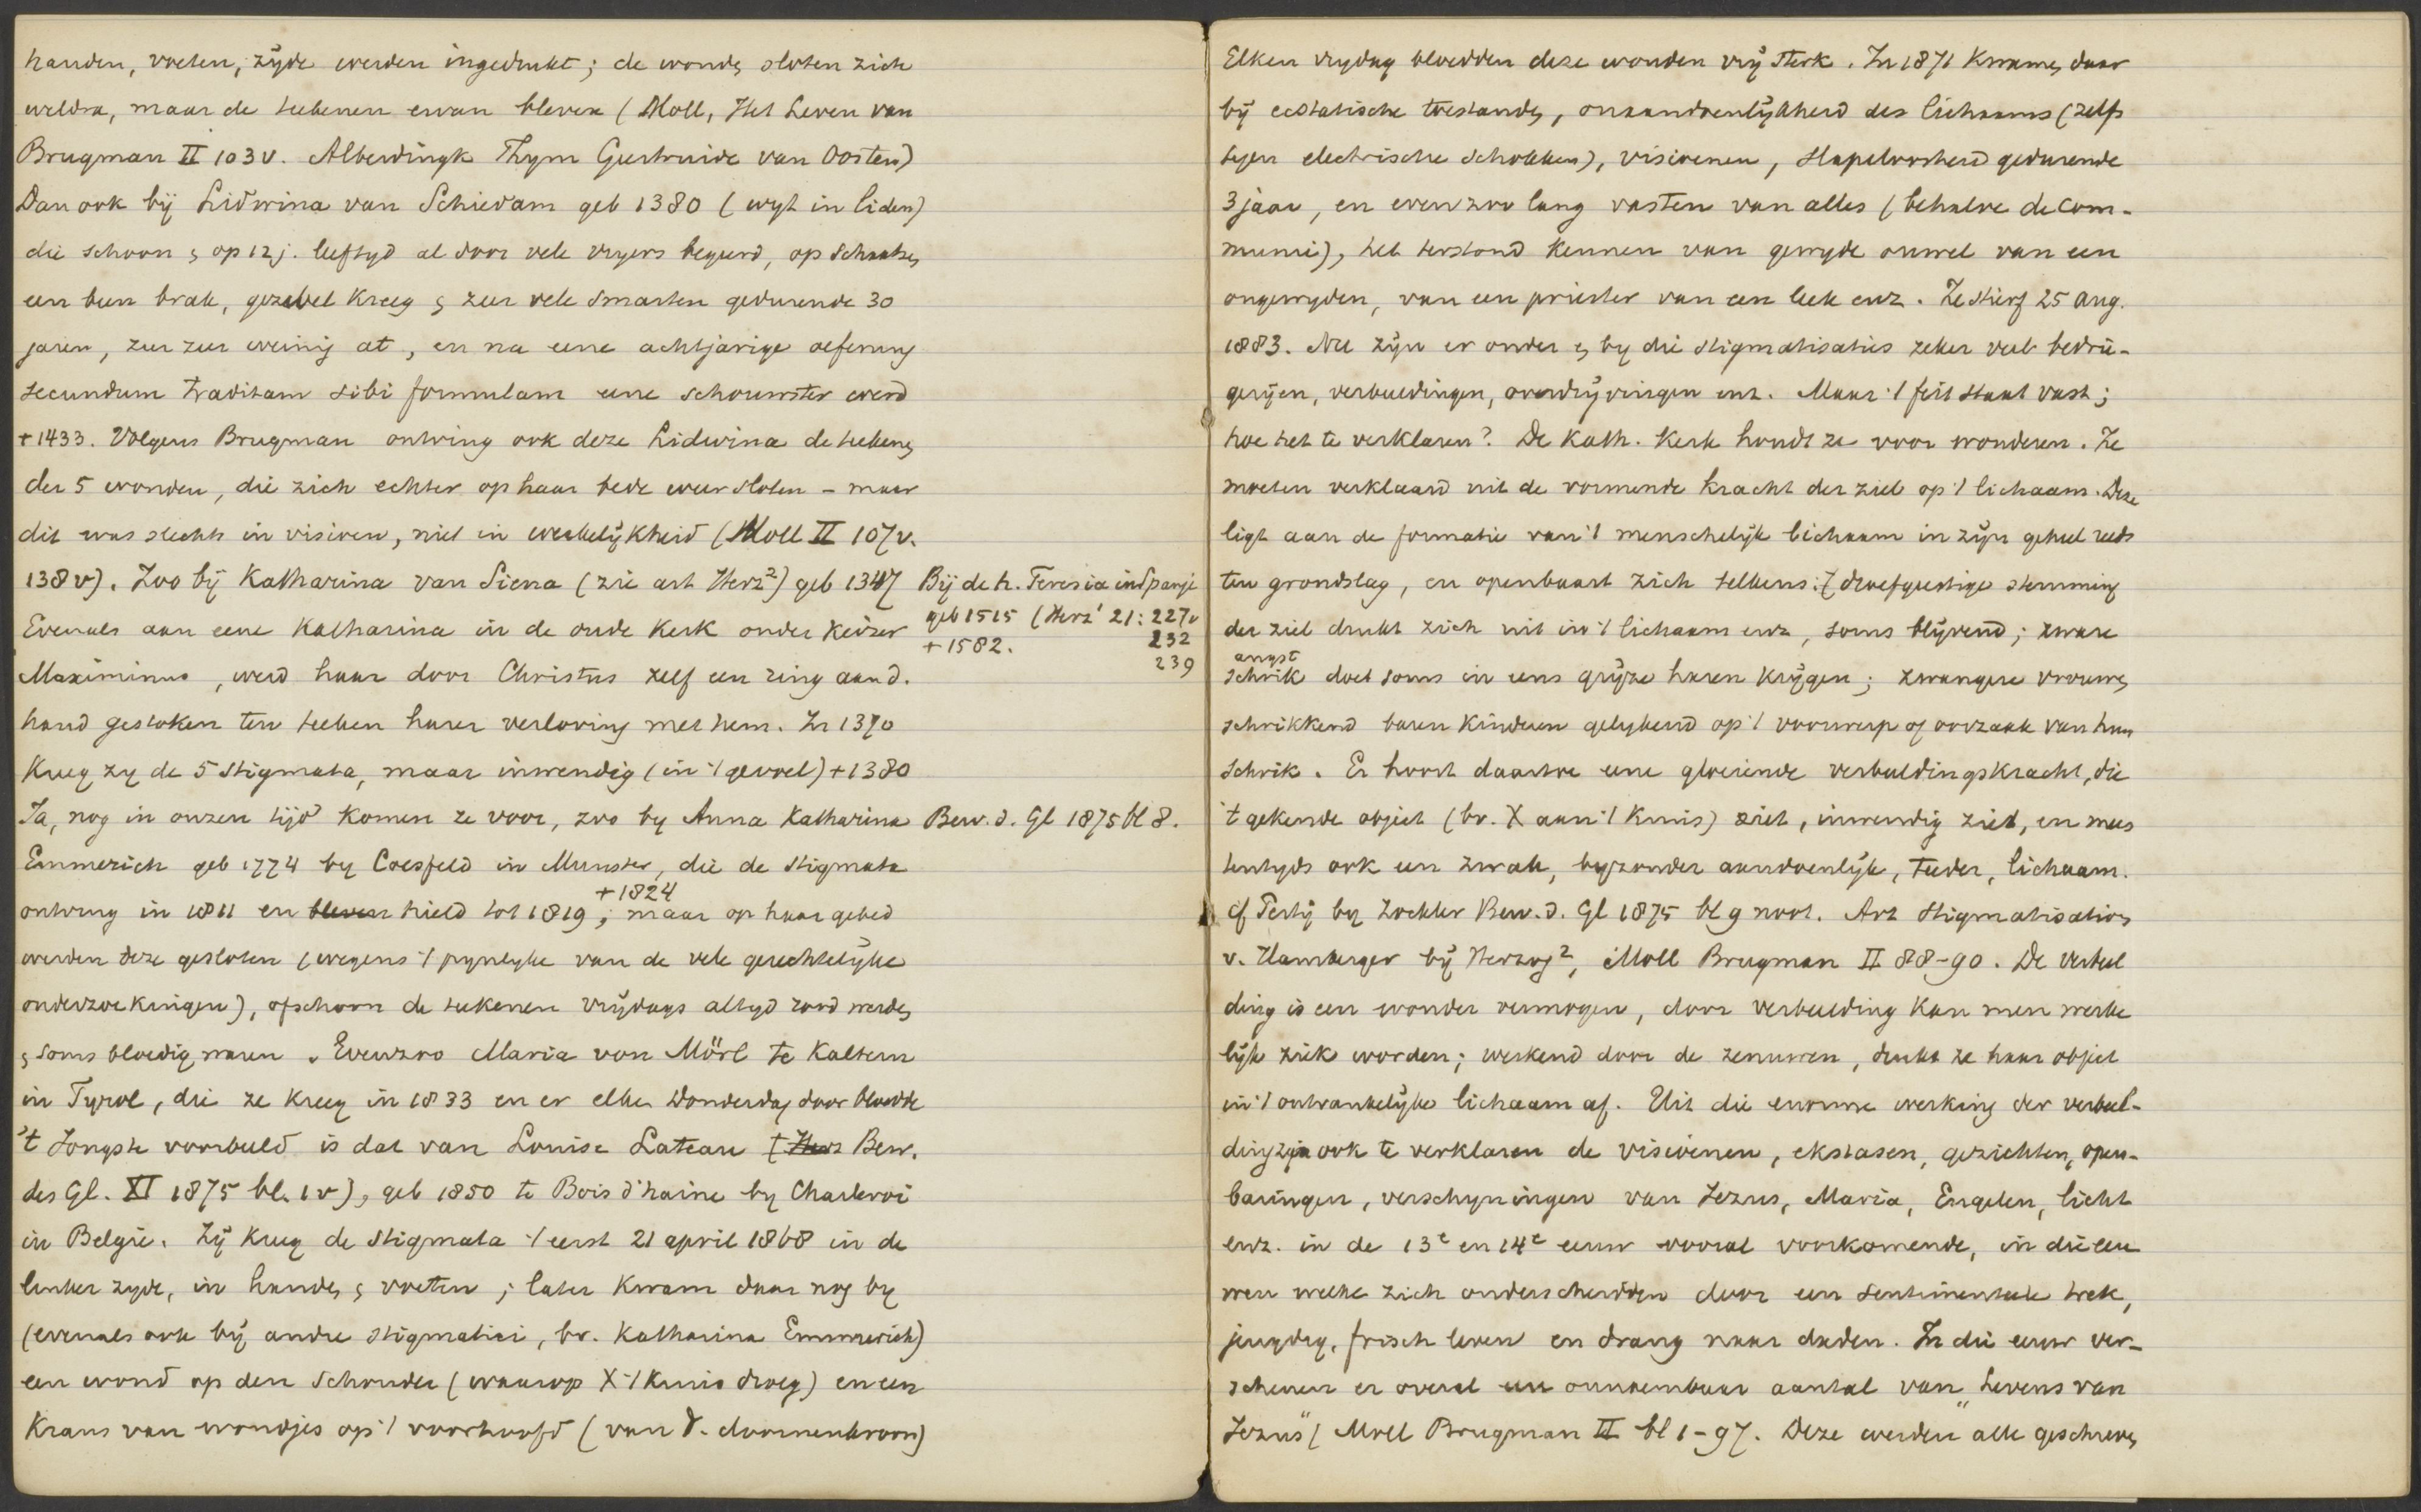 handen, voeten, zijde werden ingedrukt; de wonden sloten zich
weldra, maar de teekenen ervan bleven (Moll, Het Leven van
Brugman II 103 v. Alberdingk Thym Geertruide van Oosten)
Dan ook bij Lidwina van Schiedam geb 1380 ( wyt in liden)
die schoon & op 12 j. leeftyd al door vele vryers begeerd, op schaatsen
een been brak, gezwel kreeg & zeer vele smarten gedurende 30
jaren, zeer zeer weinig at, en na eene achtjarige oefening
secundum traditam sibi formulam eene schouwster werd
+ 1433. Volgens Brugman ontving ook deze Lidwina de teekenen
der 5 wonden, die zich echter op haar bede weer sloten – maar
dit was slechts in visioen, niet in werkelijkheid (Moll II 107 v.
138 v). Zoo bij Katharina van Siena (zie art Herz²) geb 1347
Evenals aan eene Katharina in de oude kerk onder keizer
Maximinus, werd haar door Christus zelf een ring aan d.
hand gestoken ten teeken harer verloving met hem. In 1370
kreeg zy de 5 stigmata, maar inwendig (in 't gevoel) + 1380
Ja, nog in onzen tijd komen ze voor, zoo by Anna Katharina
Emmerich geb 1774 by Coesfeld in Munster, die de stigmata
+ 1824
ontving in 1811 en bleven hield tot 1819; maar op haar gebed
werden deze gesloten (wegens 't pynlyke van de vele gerechtelyke
onderzoekingen), ofschoon de teekenen vrijdags altyd rood werden
& soms bloedig waren. Evenzoo Maria von Mörl te Kaltern
in Tyrol, die ze kreeg in 1833 en er elken Donderdag door bloedde
't Jongste voorbeeld is dat van Louise Lateau ( Herz Bew.
des Gl. XI 1875 bl. 1 v), geb 1850 te Bois d'haine by Charleroi
in Belgie. Zij kreeg de stigmata 't eerst 21 april 1868 in de
linker zyde, in handen & voeten; later kwam daar nog by
(evenals ook bij andre stigmatici, bv. Katharina Emmerich)
een wond op den schouder (waarop X 't kruis droeg) en een
krans van wondjes op 't voorhoofd (van d. doornenkroon)
Bij de h. Teresia in Spanje
geb 1515 (Herz' 21: 227 v
+ 1582. 232
239
Bew. d. Gl 1875 bl 8.
Elken vrydag bloedden deze wonden vrij sterk. In 1871 kwamen daar
bij ecstatische toestanden, onaandoenlijkheid des lichaams (zelfs
tegen electrische schokken), visioenen, slapeloosheid gedurende
3 jaar, en evenzoo lang vasten van alles (behalve de com-
munie), het terstond kennen van gewyde ouwel van een
ongewyden, van een priester van een leek enz. Ze stierf 25 Aug.
1883. Nu zijn er onder & by die stigmatisaties zeker veel bedrie-
gerijen, verbeeldingen, overdrijvingen enz. Maar 't feit staat vast;
hoe het te verklaren? De Kath. Kerk houdt ze voor wonderen. Ze
moeten verklaard uit de vormende kracht der ziel op 't lichaam. Deze
ligt aan de formatie van 't menschelijk lichaam in zijn geheel reeds
ten grondslag, en openbaart zich telkens: droefgeestige stemming
der ziel drukt zich uit in 't lichaam enz, soms blijvend; zware
angst
schrik doet soms in eens grijze haren krijgen; zwangere vrouwen
schrikkend baren kinderen gelykend op 't voorwerp of oorzaak van hun
schrik. Er hoort daartoe eene gloeiende verbeeldingskracht, die
't gekende object (bv. X aan 't kruis) ziet, inwendig ziet, en mees
tentyds ook een zwak, byzonder aandoenlijk, teeder, lichaam.
cf Perty by Zöckler Bew. d. Gl 1875 bl 9 noot. Art Stigmatisation
v. Hamberger bij Herzog², Moll Brugman II 88-90. De verbeel
ding is een wonder vermogen, door verbeelding kan men werke
lijk ziek worden; werkend door de zenuwen, drukt ze haar object
in 't ontvankelyke lichaam af. Uit die enorme werking der verbeel-
ding zijn ook te verklaren de visioenen, ekstasen, gezichten, open-
baringen, verschyningen van Jezus, Maria, Engelen, licht
enz. in de 13e en 14e eeuw vooral voorkomende, in die eeu
wen welke zich onderscheidden door een sentimenteele trek,
jeugdig, frisch leven en drang naar daden. In die eeuw ver-
schenen er overal een onnoembaar aantal van "Levens van
Jezus" (Moll Brugman II bl 1-97. Deze werden alle geschreven